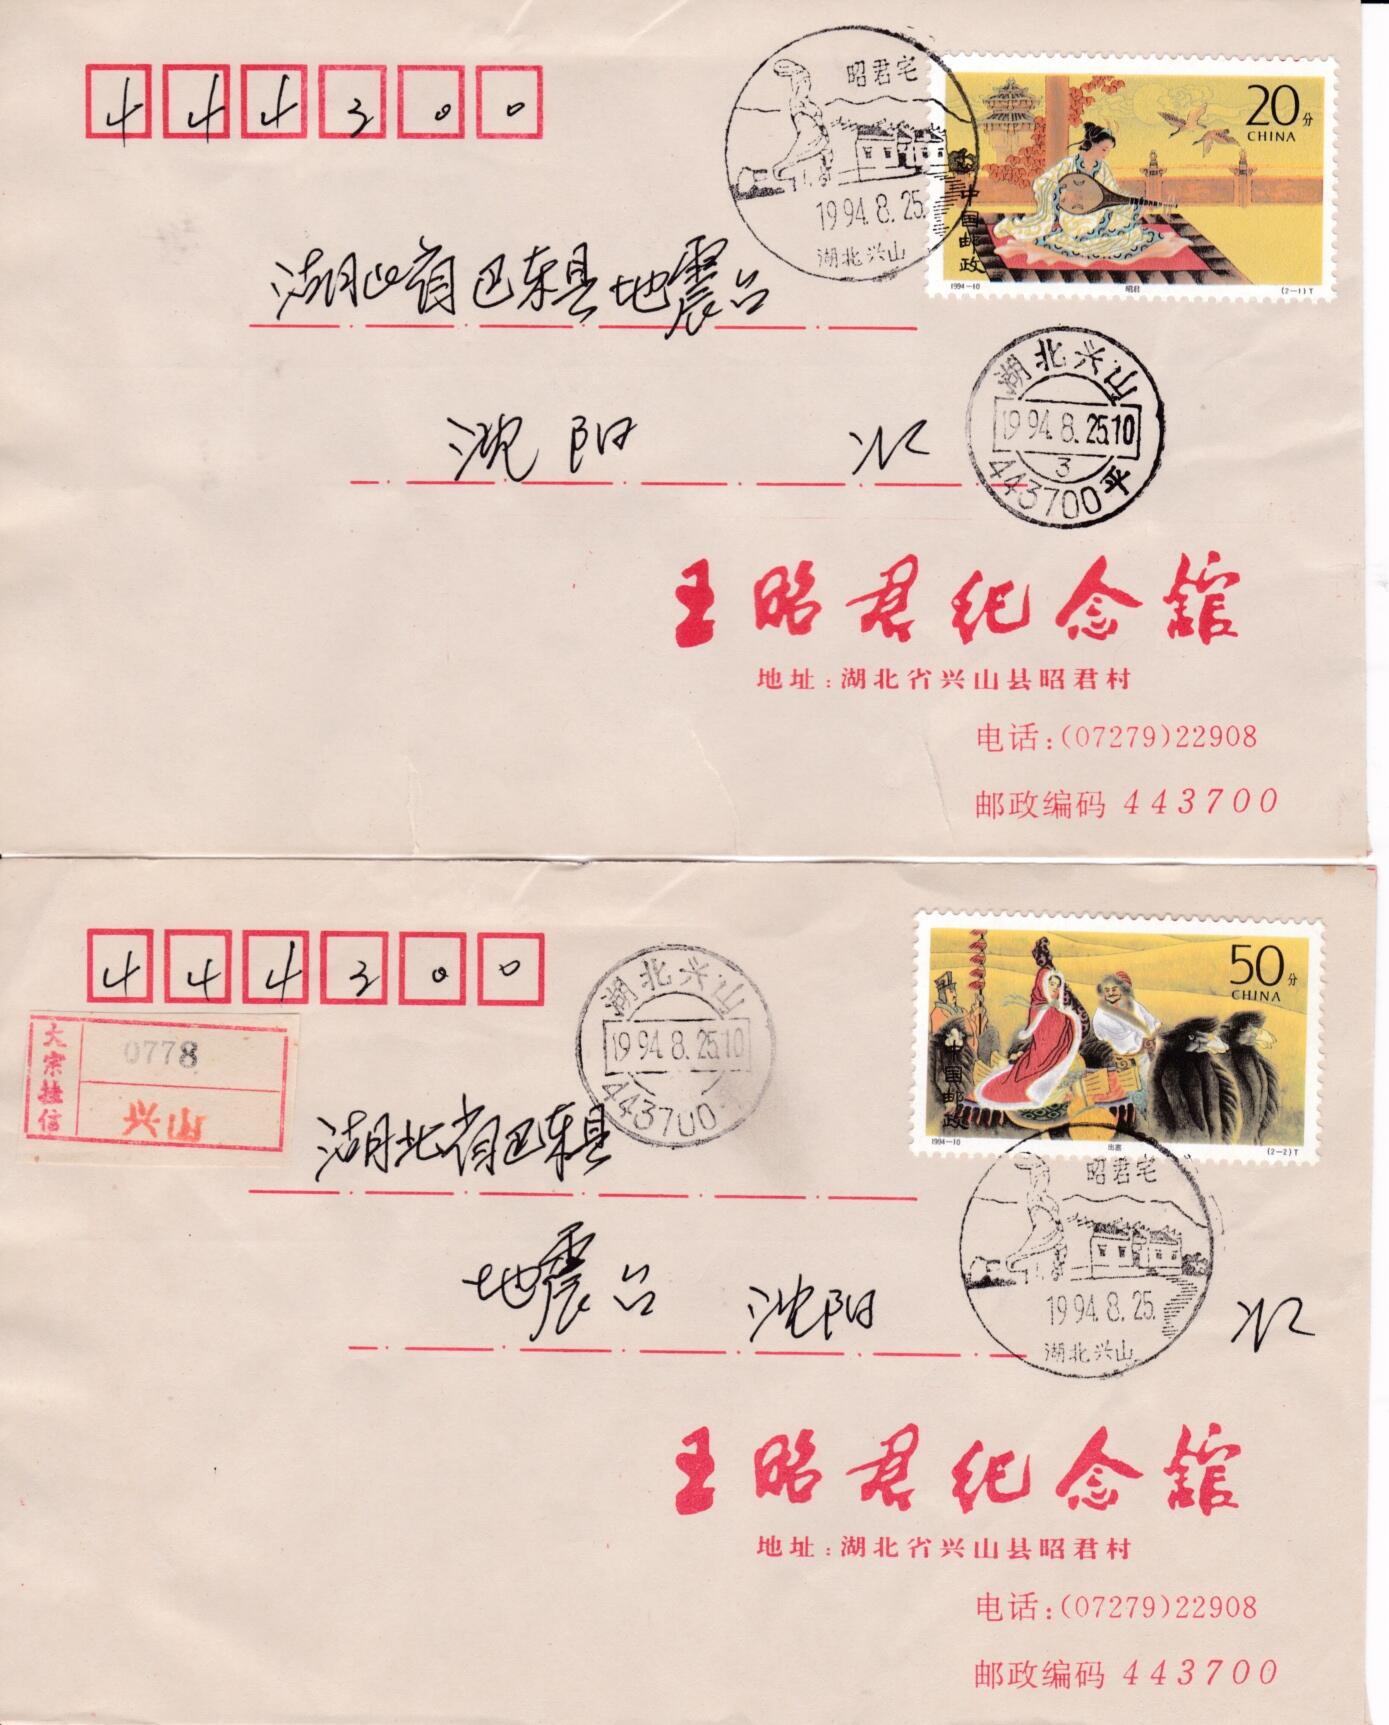 444300
昭君宅
1994.8.25.
湖北兴山
20分
CHINA
中国邮政
1994-10
昭君
(2-1)T
湖北省巴东县地震台
湖北兴山
1994.8.25.10
3
443700平
沈阳 收
王昭君纪念馆
地址:湖北省兴山县昭君村
电话:(07279)22908
邮政编码 443700
444300
大宗挂信
0778
兴山
湖北兴山
1994.8.25.10
443700
50分
CHINA
中国邮政
1994-10
出塞
(2-2)T
湖北省巴东县
昭君宅
1994.8.25.
湖北兴山
地震台 沈阳 收
王昭君纪念馆
地址:湖北省兴山县昭君村
电话:(07279)22908
邮政编码 443700